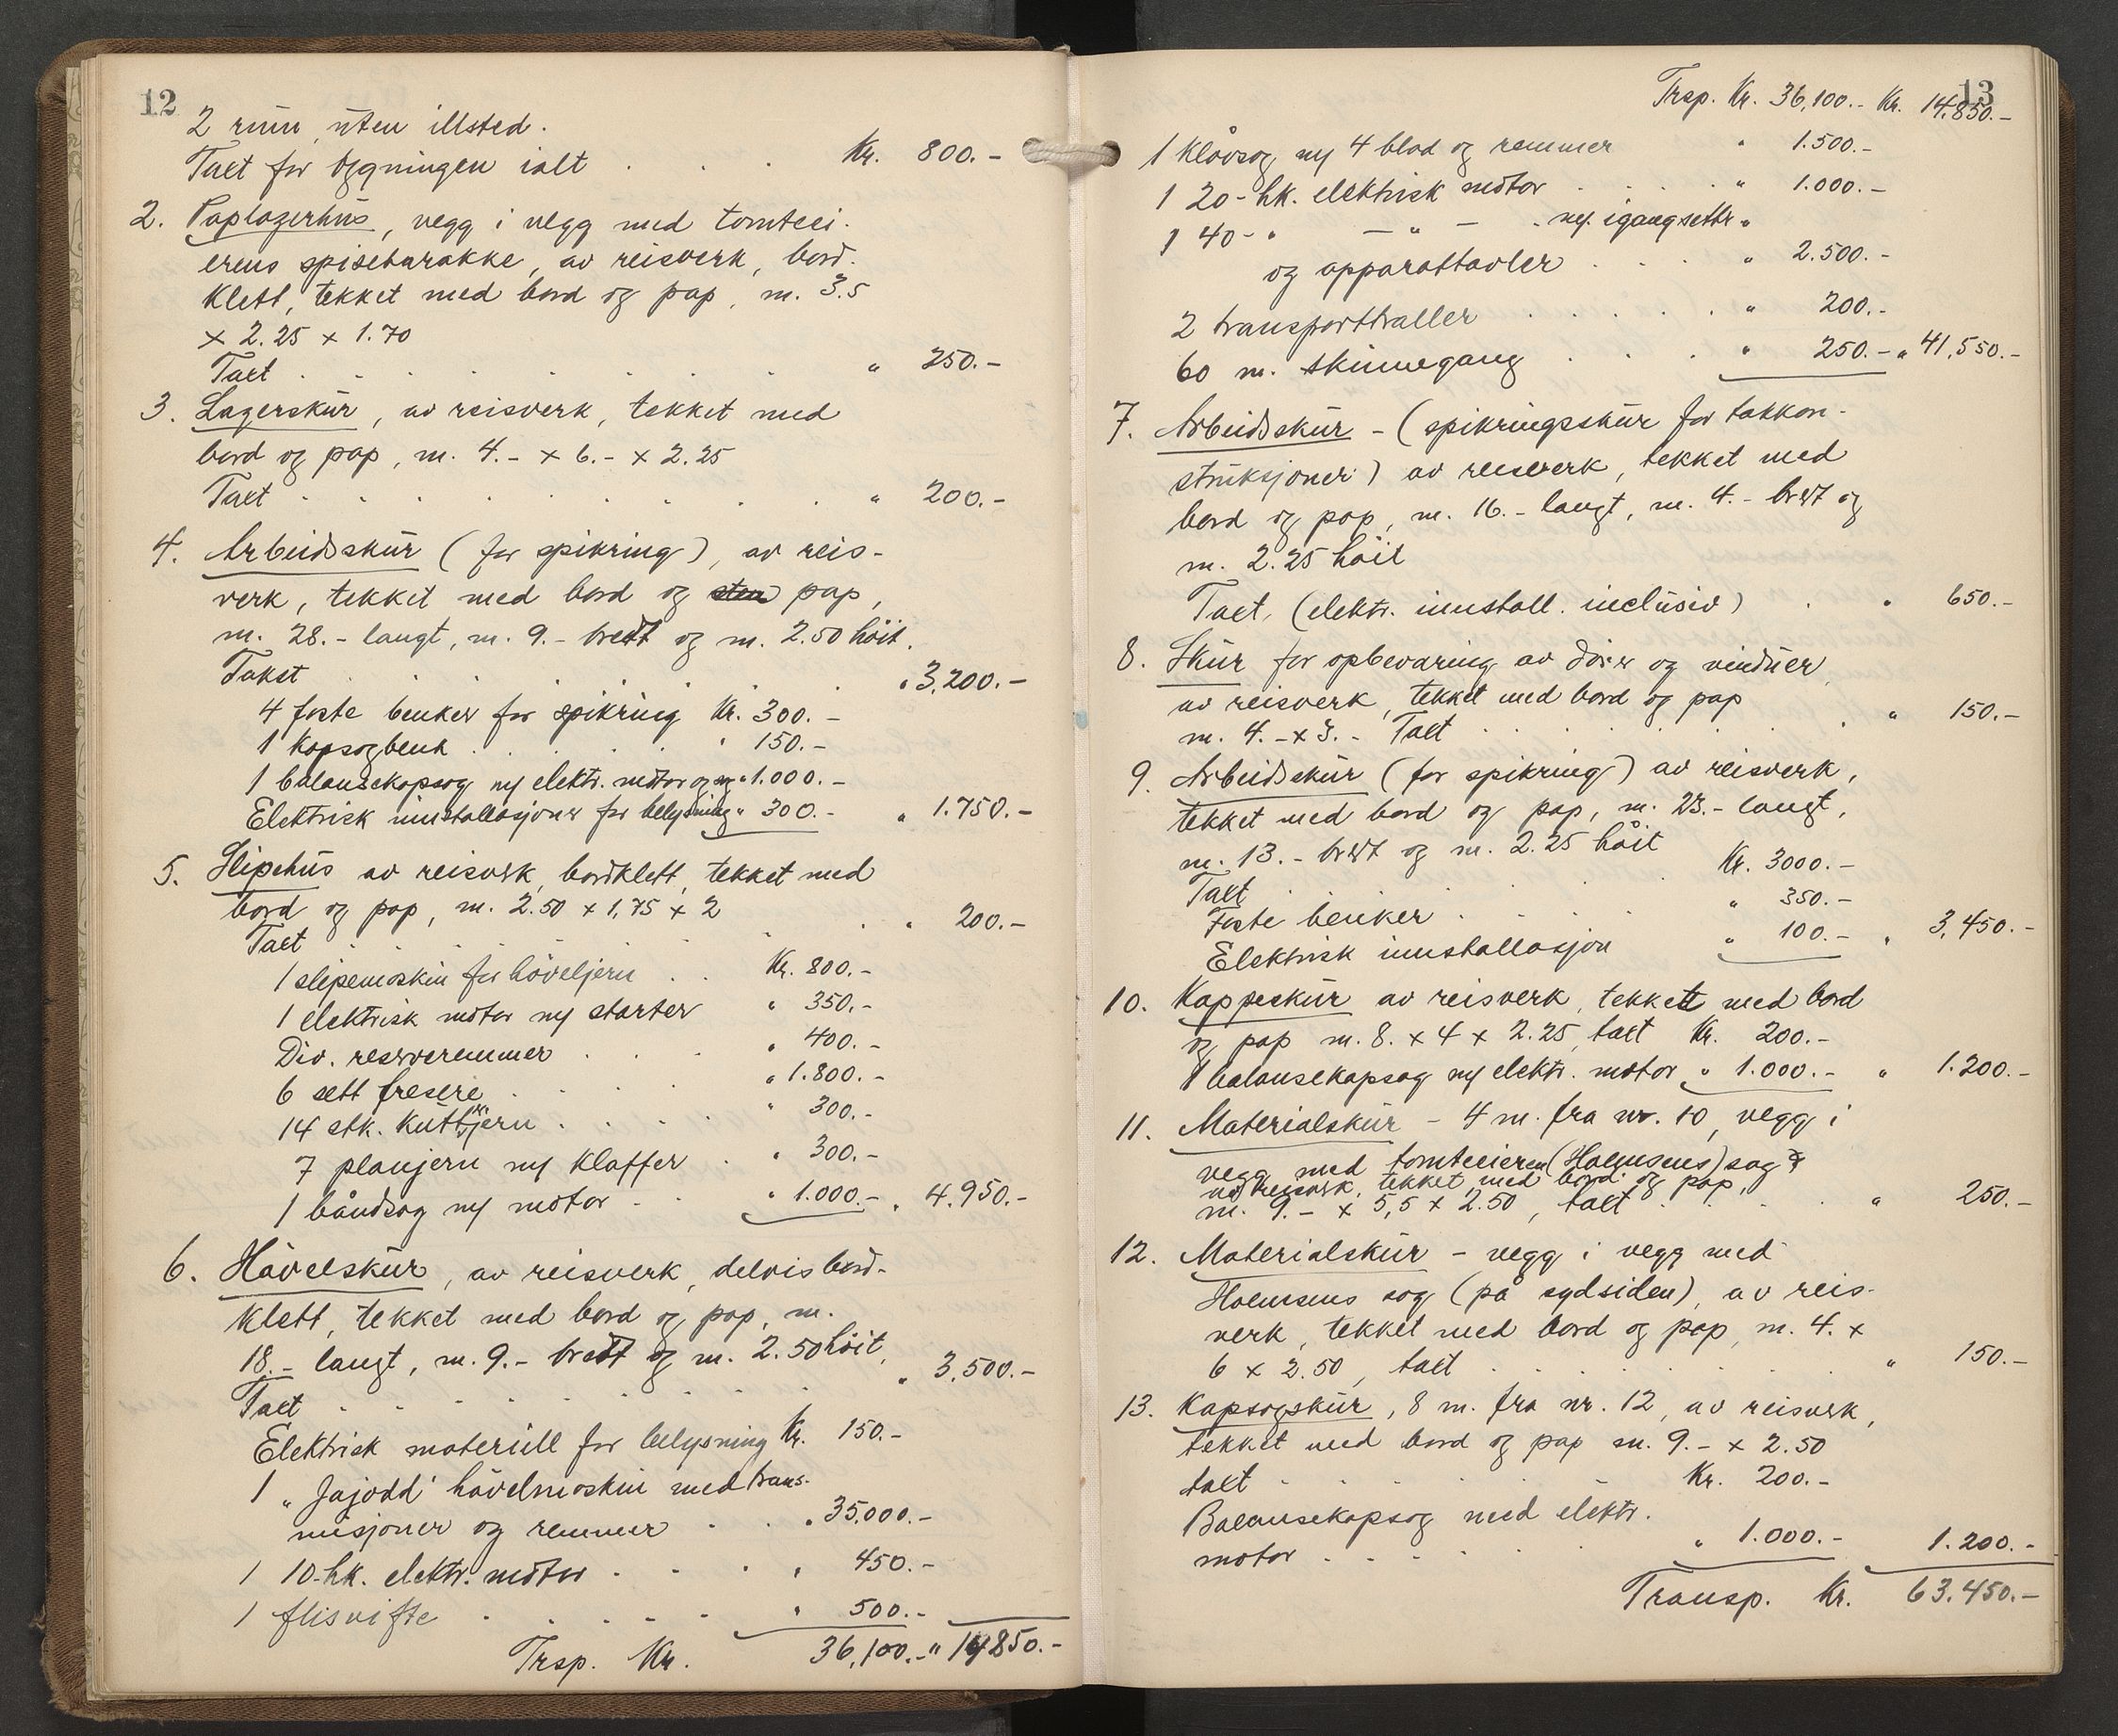 12
2 rum, uten illsted.
Taxt for bygningen ialt . . . Kr. 800.-
2. Paplagerhus, vegg i vegg med tomteei-
erens spisebarakke, av reisverk, bord-
klett, tekket med bord og pap, m. 3.5
x 2.25 x 1.70
Taxt . . . . . . . . " 250.-
3. Lagerskur, av reisverk, tekket med
bord og pap, m. 4.- x 6.- x 2.25
Taxt . . . . . . . . " 200.-
4. Arbeidsskur (for spikring), av reis-
verk, tekket med bord og sten pap,
m. 28.- langt, m. 9.- bredt og m. 2.50 höit.
Takst . . . . . . . " 3,200.-
4 faste benker for spikring Kr. 300.-
1 kapsagbenk . . . . . " 150.-
1 balansekapsag m/ elektr. motor og sag " 1.000.-
Elektrisk innstallasjoner for belysning " 300.- " 1.750.-
5. Slipehus av reisverk, bordklett, tekket med
bord og pap, m. 2.50 x 1,75 x 2
Taxt . . . . . . . " 200.-
1 slipemaskin for höveljern . . Kr. 800.-
1 elektrisk motor m/ starter " 350.-
Div. reserveremmer . . . " 400.-
6 sett fresere . . . . " 1.800.-
14 stk. kutterjern . . . . " 300.-
7 planjern m/ klaffer . " 300.-
1 båndsag m/ motor . . " 1.000.- " 4.950.-
6. Hövelskur, av reisverk, delvis bord-
klett, tekket med bord og pap, m.
18.- langt, m. 9.- bredt og m. 2.50 höit,
Taxt . . . . . . . " 3,500.-
Elektrisk materiell for belysning Kr. 150.-
1 "Jajodd" hövelmaskin med trans-
misjoner og remmer . . " 35.000.-
1 10-hk. elektr. motor . . . " 450.-
1 flisvifte . . . . . " 500.-
Trsp. Kr. 36,100.- " 14850.-
13
Trsp. Kr. 36,100.- Kr. 14,850.-
1 Klövsag m/ 4 blad og remmer " 1.500.-
1 20-hk. elektrisk motor . . . . " 1.000.-
1 40- " — " — . m/ igangsetter "
og apparattavler . . . " 2.500.-
2 transporttraller . . . . . " 200.-
60 m. skinnegang . . . . " 250.- " 41,550.-
7. Arbeidsskur - (spikringsskur for takkon-
struksjoner) av reisverk, tekket med
bord og pap, m. 16.- langt, m. 4.- bredt og
m. 2.25 höit
Taxt, (elektr. innstall. inclusiv) . " 650.-
8. Skur for opbevaring av dörer og vinduer,
av reisverk, tekket med bord og pap
m. 4.- x 3.- Taxt . . . . . . " 150.-
9. Arbeidsskur (for spikring) av reisverk,
tekket med bord og pap, m. 23.- langt,
m. 13.- bredt og m. 2.25 höit
Taxt . . . . . Kr. 3000.-
Faste benker . . . . " 350.-
Elektrisk innstallasjon " 100.- " 3,450.-
10. Kappeskur av reisverk, tekket med bord
og pap m. 8. x 4 x 2.25, taxt Kr. 200.-
1 balansekapsag m/ elektr. motor " 1.000.- " 1.200.-
11. Materialskur - 4 m. fra nr. 10, vegg i
vegg med tomteeieren (Holmsens) sag
av reisverk, tekket med bord og pap,
m. 9.- x 5,5 x 2.50, taxt . . . . " 250.-
12. Materialskur - vegg i vegg med
Holmsens sag (på sydsiden), av reis-
verk, tekket med bord og pap, m. 4. x
6 x 2.50, taxt . . . . . . " 150.-
13. Kapsagskur, 8 m. fra nr. 12, av reisverk,
tekket med bord og pap m. 9.- x 2.50
taxt . . . . . . Kr. 200.-
Balansekapsag med elektr.
motor . . . . . " 1.000.- 1.200.-
Transp. Kr. 63.450.-